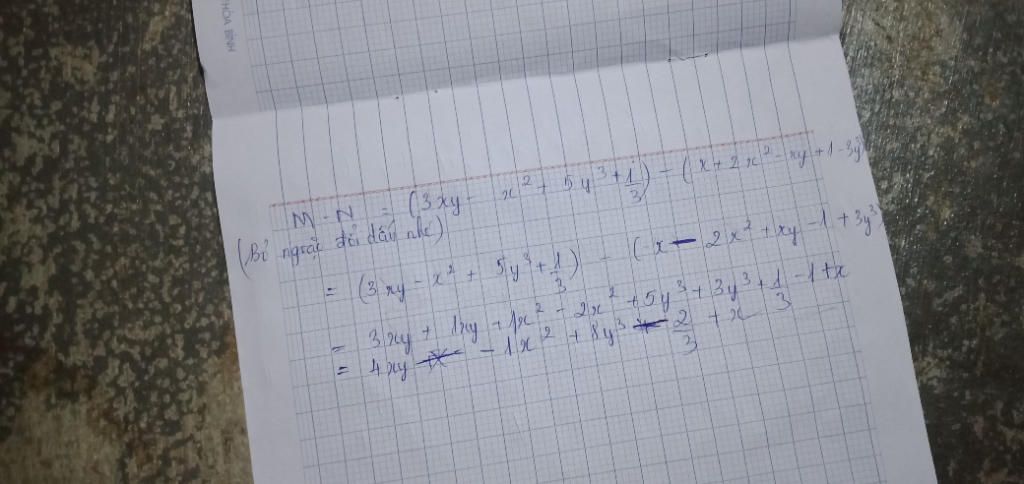 HÒA BÌNH
M - N = (3xy - x² + 5y³ + 1/3) - (x + 2x² - xy + 1 - 3y³
(Bỏ ngoặc đổi dấu nhé)
= (3xy - x² + 5y³ + 1/3) - (x - 2x² + xy - 1 + 3y³)
= 3xy + 1xy + 1x² - 2x² + 5y³ + 3y³ + 1/3 - 1 + x
= 4xy - 1x² + 8y³ - 2/3 + x